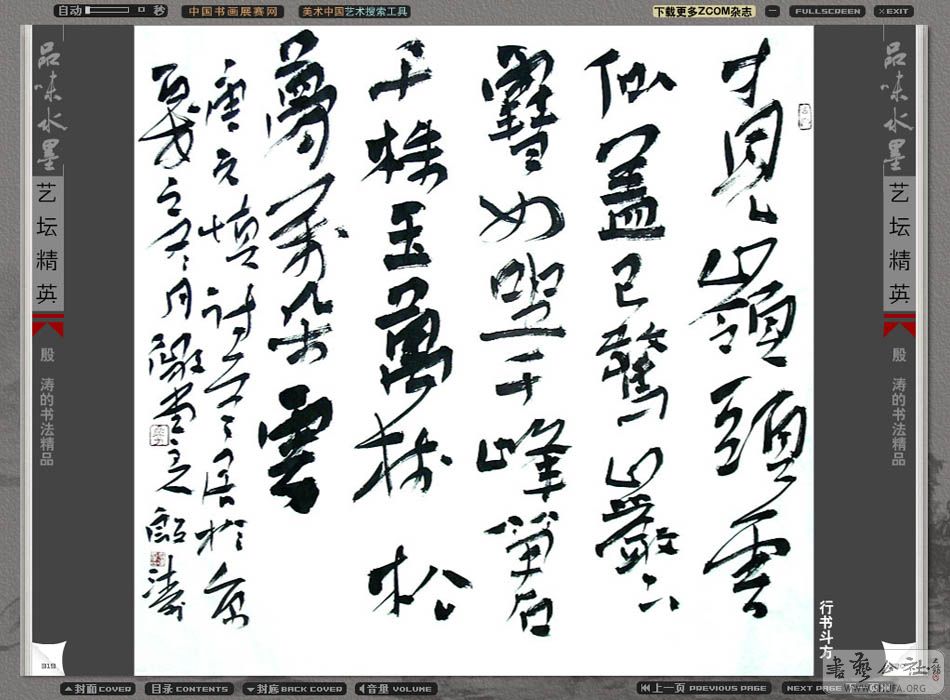 自动 秒 中国书画展赛网 美术中国艺术搜索工具 下载更多ZCOM杂志 FULLSCREEN EXIT
品味水墨
艺坛精英
殷 涛的书法精品
才見嶺頭雲
似盖已驚巖下
雪如塵千峰笋石
千株玉萬树松
萝万朵雲
唐元慎詩
殷涛
行书斗方
品味水墨
艺坛精英
殷 涛的书法精品
319
书艺公社
WWW.CQUFA.ORG
封面 COVER 目录 CONTENTS 封底 BACK COVER 音量 VOLUME 上一页 PREVIOUS PAGE NEXT PAGE